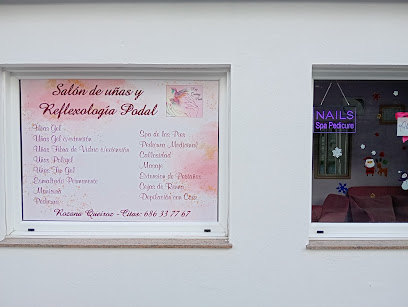 Salón de uñas y
Reflexología Podal
Uñas Gel
Uñas Gel c/extensión
Uñas Fibra de Vidrio c/extensión
Uñas Poligel
Uñas Tip Gel
Esmaltado Permanente
Manicura
Pedicura
Spa de los Pies
Pedicura Medicinal
Callosidad
Masaje
Extensión de Pestañas
Cejas de
Depilación con Cera
Rozana Queiroz - Citas: 686 33 77 67
NAILS
Spa Pedicure